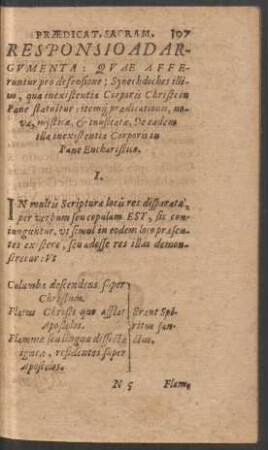 PRÆDICAT. SACRAM. 107
RESPONSIO AD AR-
GVMENTA: QVAE AFFE-
runtur pro defensione; Synechdoches illi-
us, qua inexistentia Corporis Christi in
Pane statuitur: item; prædicationis, no-
væ, mysticæ, & inusitatæ, De eadem
illa inexistentia Corporis in
Pane Eucharistiæ.
I.
IN multis Scripturæ locis res disparatæ,
per verbum seu copulam EST, sic con-
iunguntur, ut simul in eodem loco præsen-
tes existere, seu adesse res illas demon-
stretur: Vt
Columba descendens super
Christum.
Flatus Christi quo afflat
Apostolos.
Flammæ seu linguæ dissectæ
igneæ, residentes super
Apostolos.
Erant Spi-
ritus san-
ctus.
N 5 Flam-